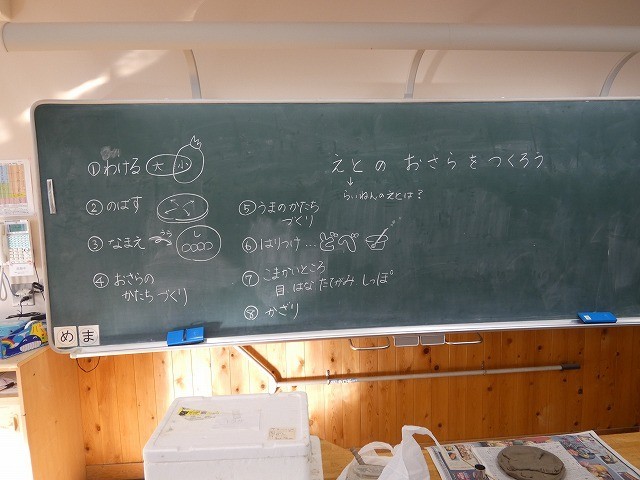 えとの おさらを つくろう
らいねんのえとは?
①わける 大 小
②のばす
③なまえ うら し
④おさらの
かたちづくり
⑤うまのかたち
づくり
⑥はりつけ…どべ
⑦こまかいところ
目 はな たてがみ しっぽ
⑧かざり
め ま